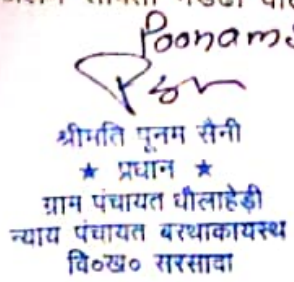 Poonam
श्रीमति पूनम सैनी
★ प्रधान ★
ग्राम पंचायत धौलाहेड़ी
न्याय पंचायत बरथाकायस्थ
वि०ख० सरसावा